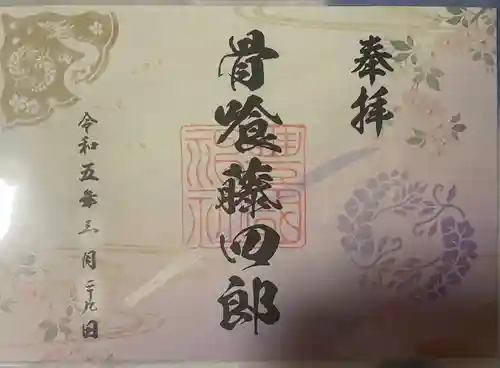 奉拝
骨喰藤四郎
令和五年三月二十九日